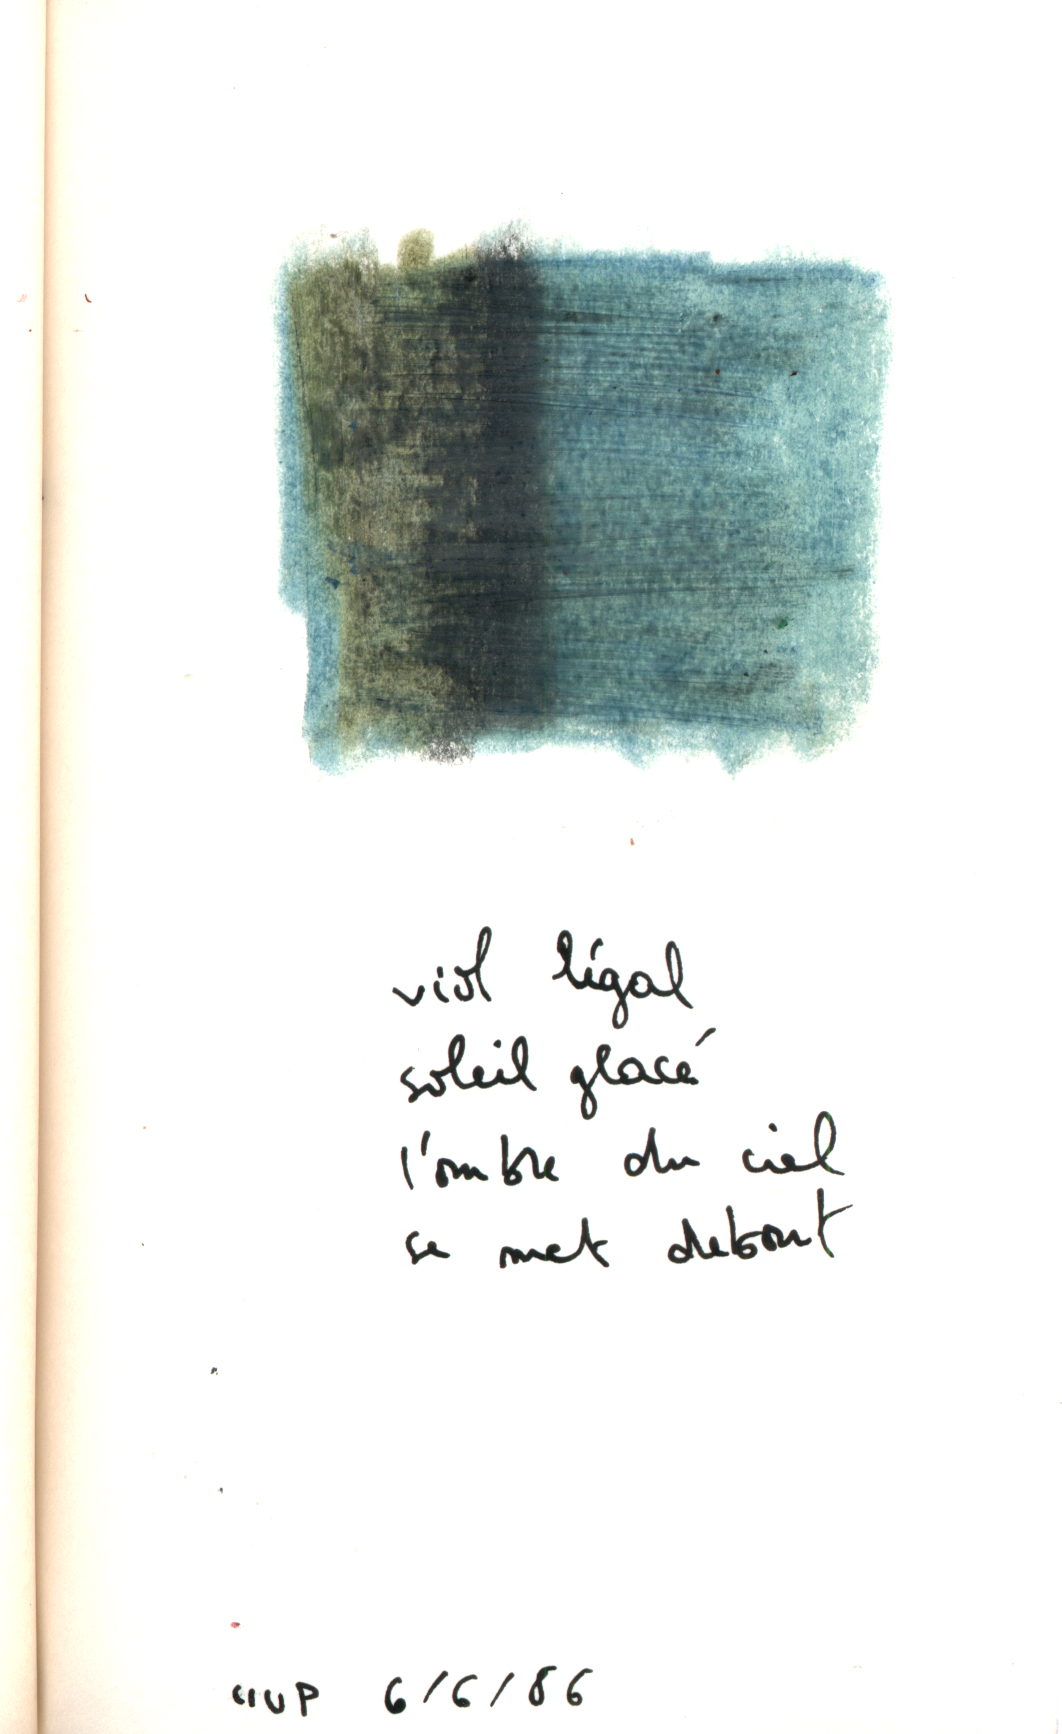 viol légal
soleil glacé
l'ombre du ciel
se met debout
6/6/86